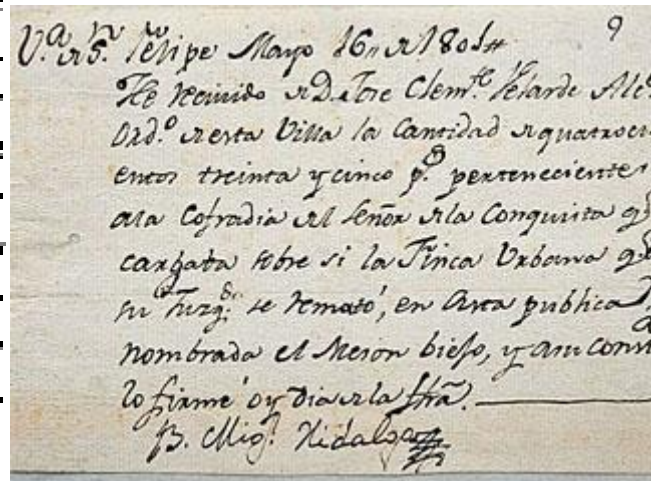 9
V.ª de S.n Felipe Mayo 16,, de 1801,,
He Recivido de D.n Jose Clem.te Velarde Alc.
Ord.º de esta Villa la Cantidad de quatroci
entos treinta y cinco p.s pertenecientes
a la Cofradia del Señor de la Conquista q.e
cargaba sobre si la Finca Urbana q.e
su Juzg.º se Remató, en Asta publica
nombrada el Meson biejo, y a mi const
lo firmé oy dia de la fhã.
B. Mig.l Hidalgo